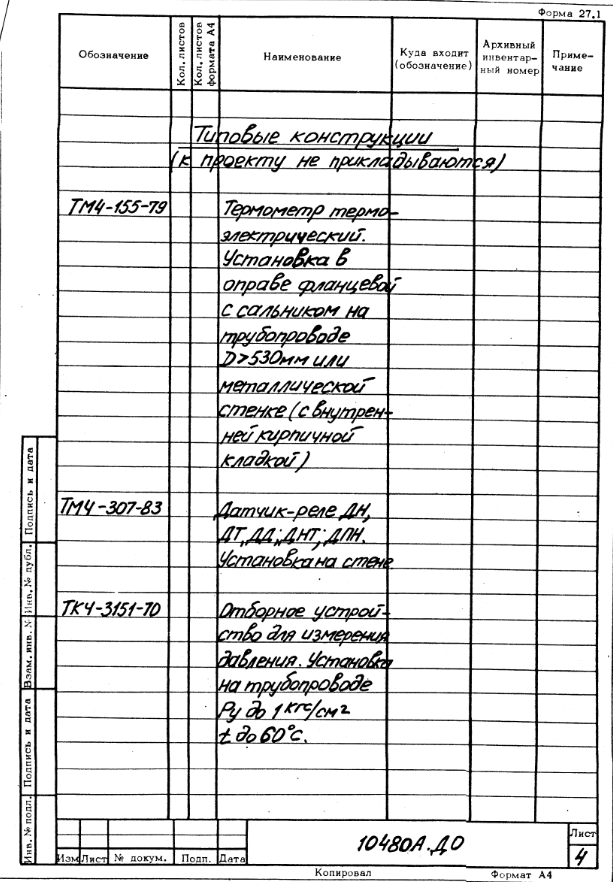 Форма 27.1
Обозначение
Кол. листов
Кол. листов
формата А4
Наименование
Куда входит
(обозначение)
Архивный
инвентар-
ный номер
Приме-
чание
Типовые конструкции
(к проекту не прикладываются)
ТМ4-155-79
Термометр термо-
электрический.
Установка в
оправе фланцевой
с сальником на
трубопроводе
D>530мм или
металлической
стенке (с внутрен-
ней кирпичной
кладкой)
ТМ4-307-83
Датчик-реле ДН,
ДТ, ДД; ДНТ; ДПН.
Установка на стене
ТК4-3151-70
Отборное устрой-
ство для измерения
давления. Установка
на трубопроводе
Ру до 1 кгс/см2
t до 60°с.
Подпись и дата
Инв. № публ.
Взам. инв. №
Подпись и дата
Инв. № подл.
Изм Лист № докум. Подп. Дата
10480А.ДО
Лист
4
Копировал
Формат А4